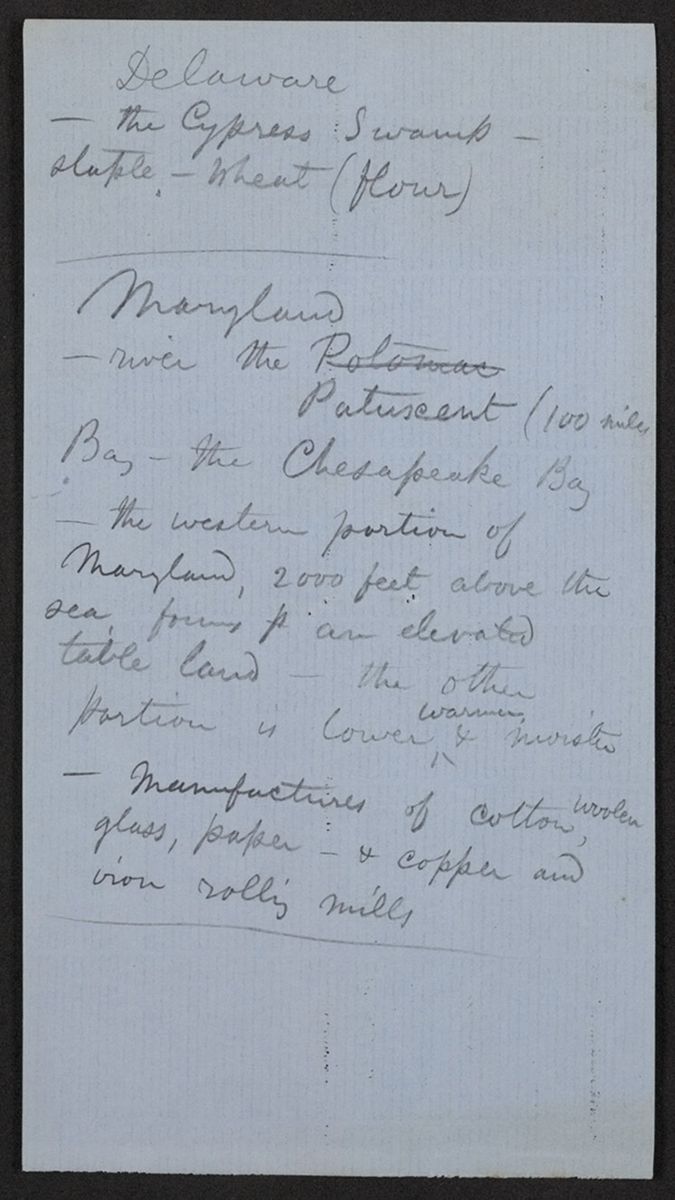 Delaware
— the Cypress Swamp —
staple — Wheat (flour)
Maryland
— river the Potomac
Patuxent (100 miles
Bay — the Chesapeake Bay
— the western portion of
Maryland, 2000 feet above the
sea, forms an elevated
table land — the other
warmer,
portion is lower, & moister
— Manufactures of cotton, woolen
glass, paper — & copper and
iron rolling mills